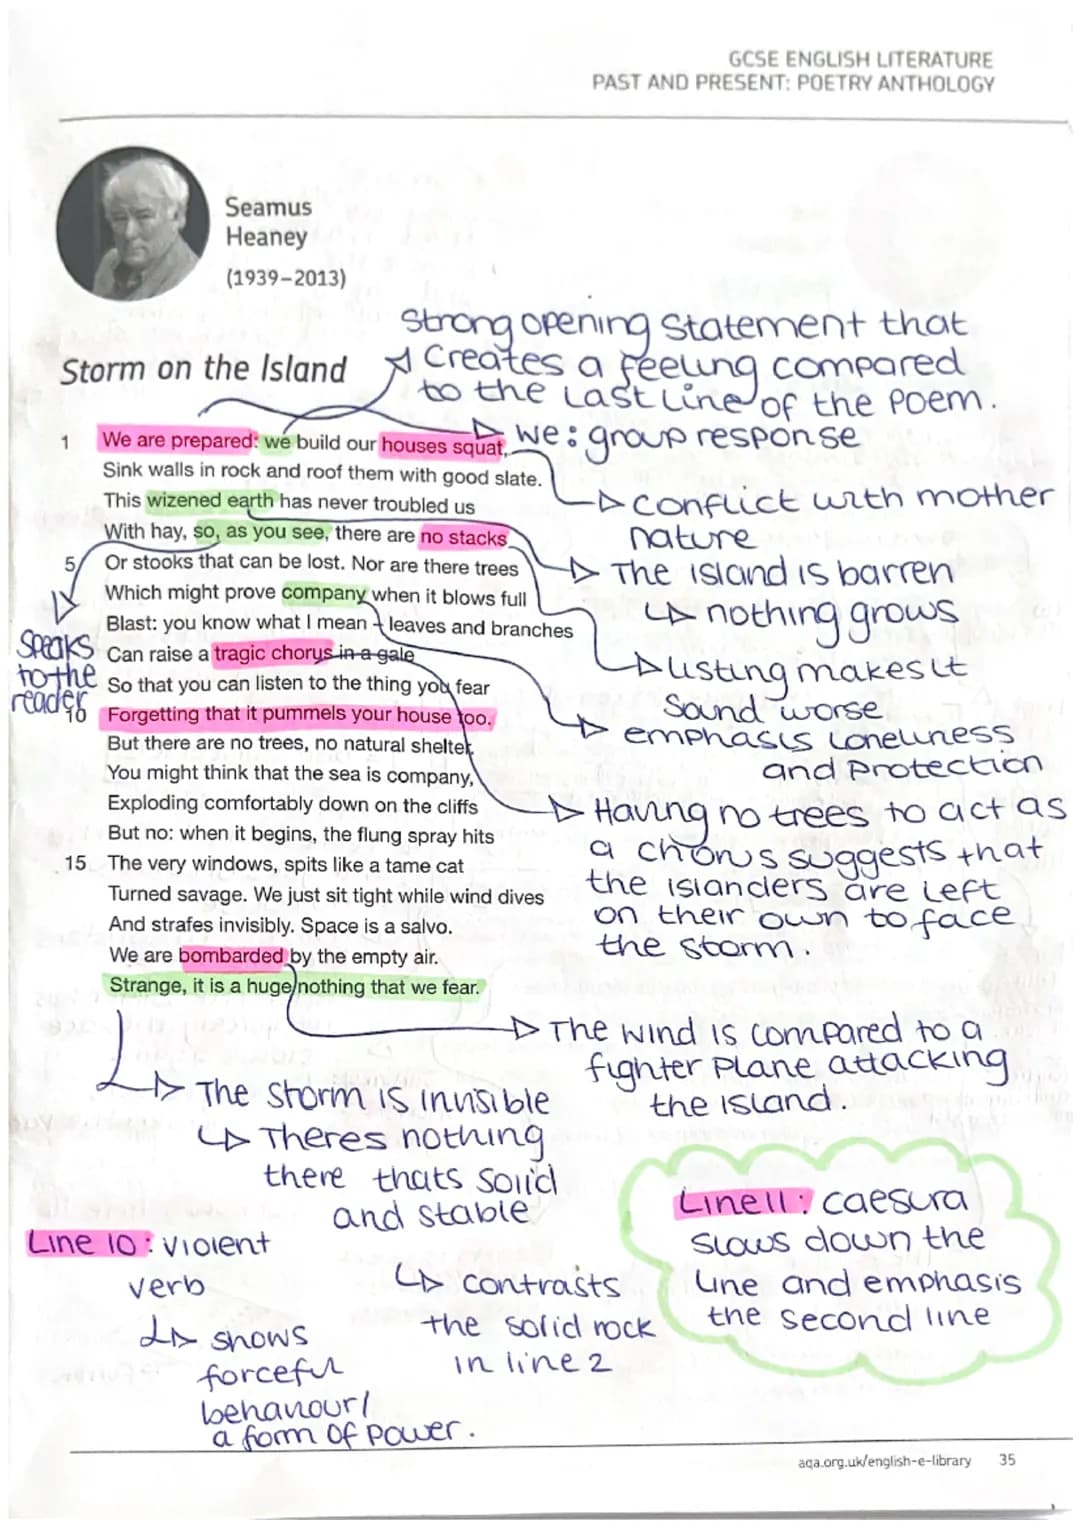 GCSE ENGLISH LITERATURE
PAST AND PRESENT: POETRY ANTHOLOGY
Seamus
Heaney
(1939–2013)
Strong opening statement that
Creates a feeling compared
to the last line of the poem.
Storm on the Island
we: group response
1 We are prepared: we build our houses squat,
Sink walls in rock and roof them with good slate.
This wizened earth has never troubled us
With hay, so, as you see, there are no stacks
5 Or stooks that can be lost. Nor are there trees
Which might prove company when it blows full
Blast: you know what I mean – leaves and branches
Can raise a tragic chorus in a gale
So that you can listen to the thing you fear
10 Forgetting that it pummels your house too.
But there are no trees, no natural shelter.
You might think that the sea is company,
Exploding comfortably down on the cliffs
But no: when it begins, the flung spray hits
15 The very windows, spits like a tame cat
Turned savage. We just sit tight while wind dives
And strafes invisibly. Space is a salvo.
We are bombarded by the empty air.
Strange, it is a huge nothing that we fear.
Speaks
to the
reader
Conflict with mother
nature
The island is barren
nothing grows
listing makes it
Sound worse
emphasis loneliness
and Protection
Having no trees to act as
a chorus suggests that
the islanders are left
on their own to face
the storm.
The wind is compared to a
fighter Plane attacking
the island.
The storm is invisible
Theres nothing
there thats solid
and stable
contrasts
the solid rock
in line 2
Line 10: violent
verb
shows
forceful
behaviour/
a form of power.
Line 11: caesura
slows down the
line and emphasis
the second line
aqa.org.uk/english-e-library 35